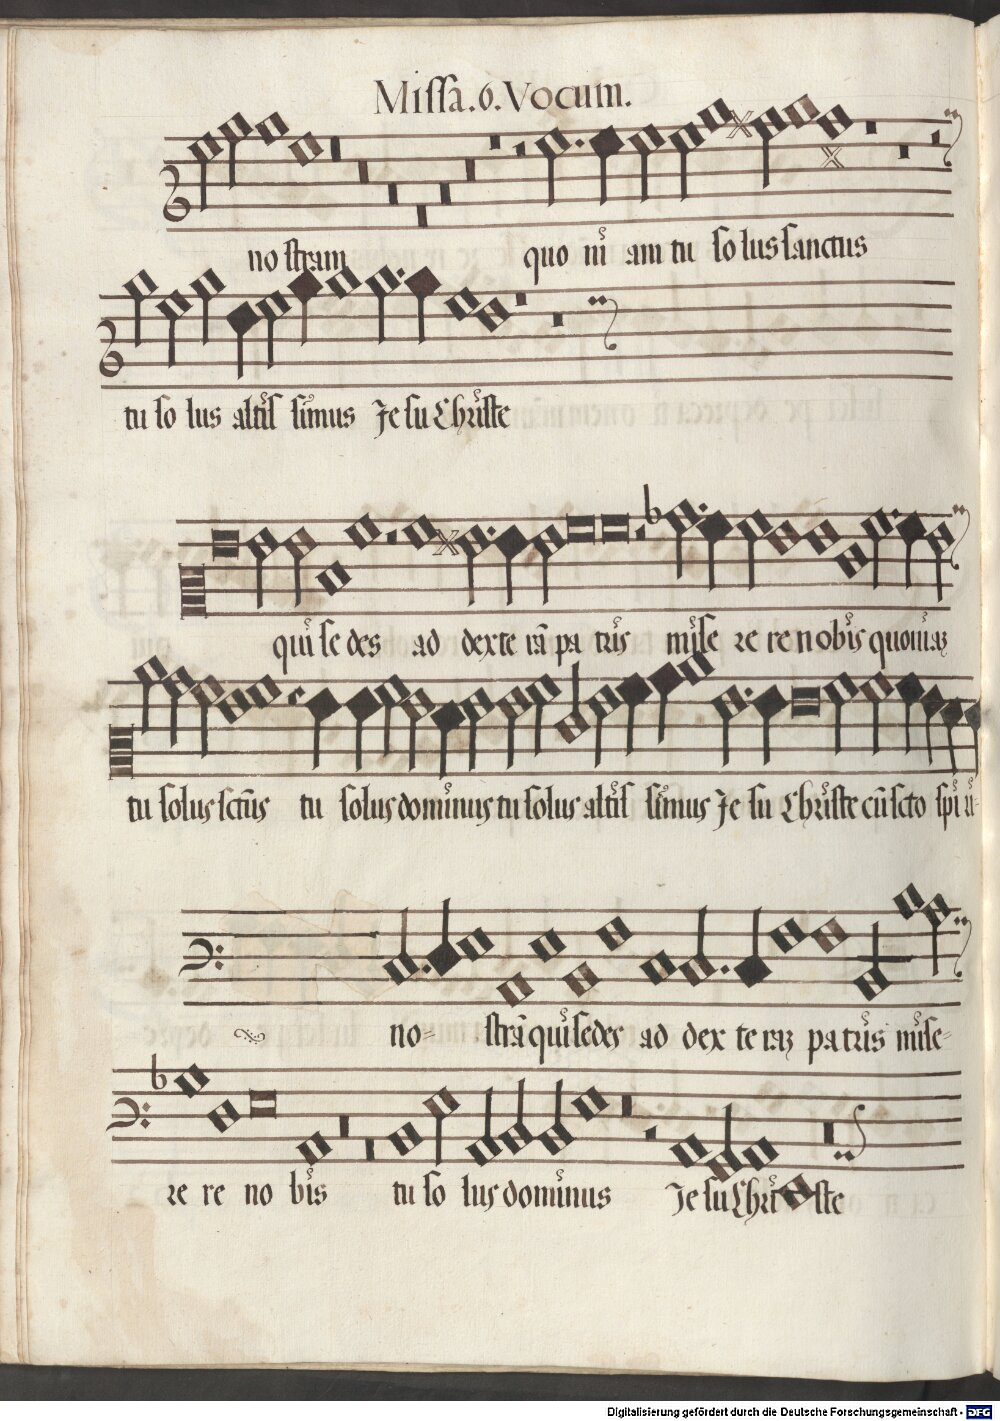 Missā.6.Vocum.
no stram quo ni am tu so lus sanctus
tu so lus altis simus Je su Christe
qui se des ad dexte rā pa tris mise re re nobis quoniaz
tu solus sctus tu solus dominus tu solus altis simus Je su Christe cū scto spi ri-
no- strā qui sedes ad dex te raz patris mise-
re re no bis tu so lus dominus Je su Chri ste
Digitalisierung gefördert durch die Deutsche Forschungsgemeinschaft - DFG